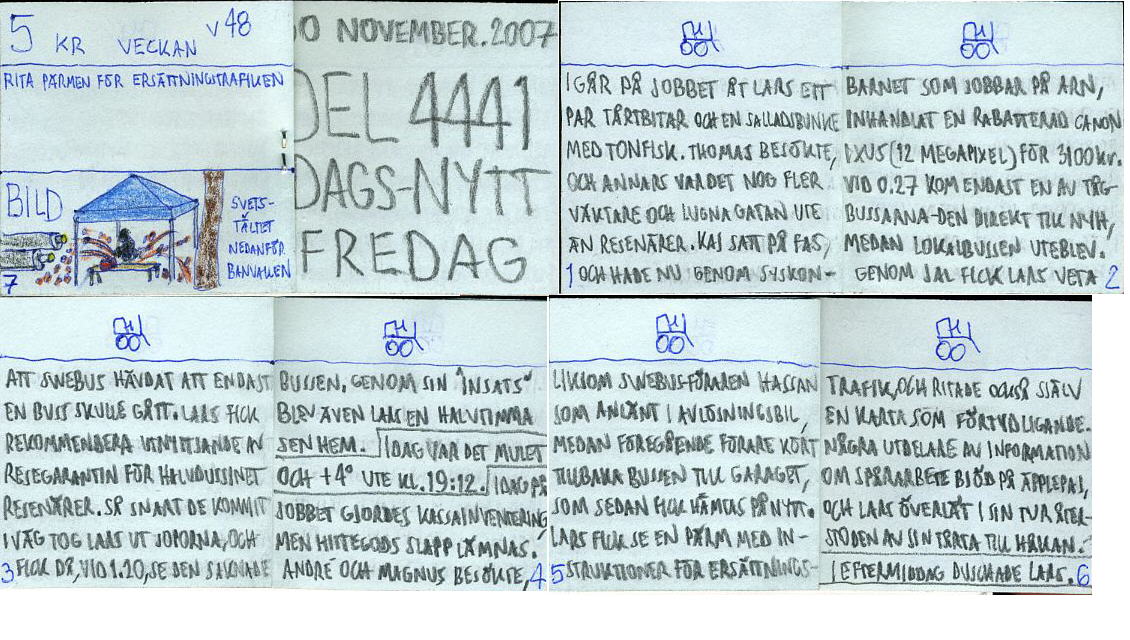 5 KR VECKAN v48
RITA PÄRMEN FÖR ERSÄTTNINGSTRAFIKEN
BILD
SVETS-
TÄLTET
NEDANFÖR
BANVALLEN
7
30 NOVEMBER.2007
DEL 4441
DAGS-NYTT
FREDAG
IGÅR PÅ JOBBET ÅT LARS ETT
PAR TÅRTBITAR OCH EN SALLADSBUNKE
MED TONFISK. THOMAS BESÖKTE,
OCH ANNARS VAR DET NOG FLER
VÄKTARE OCH LUGNA GATAN UTE
ÄN RESENÄRER. KAJ SATT PÅ FAS,
1 OCH HADE NU GENOM SYSKON-
BARNET SOM JOBBAR PÅ ARN,
INHANDLAT EN RABATTERAD CANON
IXUS (12 MEGAPIXEL) FÖR 3100 kr.
VID 0.27 KOM ENDAST EN AV TÅG-
BUSSARNA-DEN DIREKT TILL NYH,
MEDAN LOKALBUSSEN UTEBLEV.
GENOM JAL FICK LARS VETA 2
ATT SWEBUS HÄVDAT ATT ENDAST
EN BUSS SKULLE GÅTT. LARS FICK
REKOMMENDERA UTNYTTJANDE AV
RESEGARANTIN FÖR HALVDUSSINET
RESENÄRER. SÅ SNART DE KOMMIT
IVÄG TOG LARS UT SOPORNA, OCH
3 FICK DÅ, VID 1.20, SE DEN SAKNADE
BUSSEN. GENOM SIN "INSATS"
BLEV ÄVEN LARS EN HALVTIMMA
SEN HEM. IDAG VAR DET MULET
OCH +4° UTE KL.19:12. IDAG PÅ
JOBBET GJORDES KASSAINVENTERING
MEN HITTEGODS SLAPP LÄMNAS.
ANDRÉ OCH MAGNUS BESÖKTE, 4
LIKSOM SWEBUS-FÖRAREN HASSAN
SOM ANLÄNT I AVLÖSNINGSBIL,
MEDAN FÖREGÅENDE FÖRARE KÖRT
TILLBAKA BUSSEN TILL GARAGET,
SOM SEDAN FICK HÄMTAS PÅ NYTT.
LARS FICK SE EN PÄRM MED IN-
5 STRUKTIONER FÖR ERSÄTTNINGS-
TRAFIK, OCH RITADE OCKSÅ SJÄLV
EN KARTA SOM FÖRTYDLIGANDE.
NÅGRA UTDELARE AV INFORMATION
OM SPÅRARBETE BJÖD PÅ ÄPPLEPAJ,
OCH LARS ÖVERLÄT I SIN TUR ÅTER-
STODEN AV SIN TÅRTA TILL HÅKAN.
I EFTERMIDDAG DUSCHADE LARS. 6